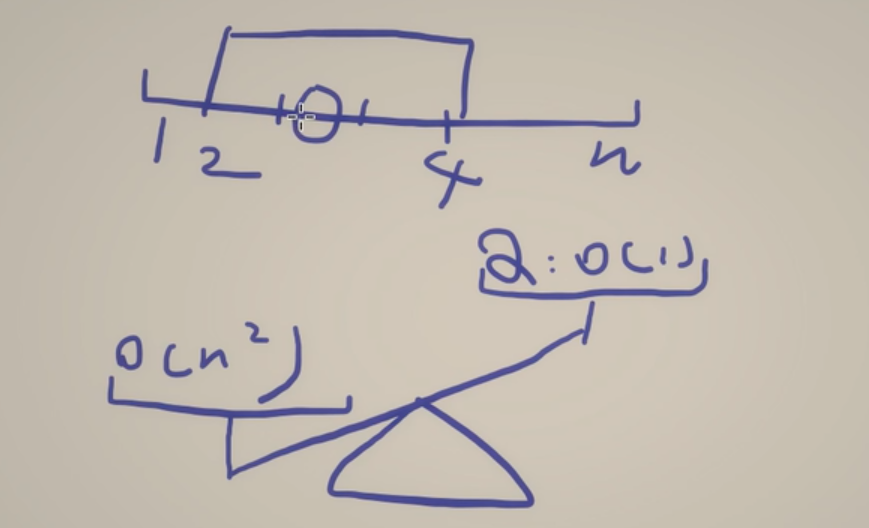 1 2 4 n
2:O(1)
O(n²)